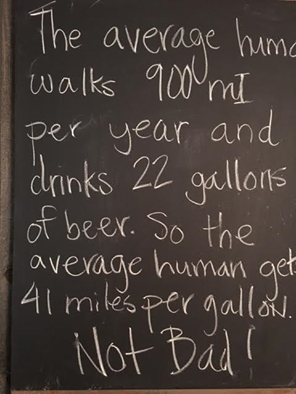 The average huma
walks 900 mI
per year and
drinks 22 gallons
of beer. So the
average human get
41 miles per gallon.
Not Bad!